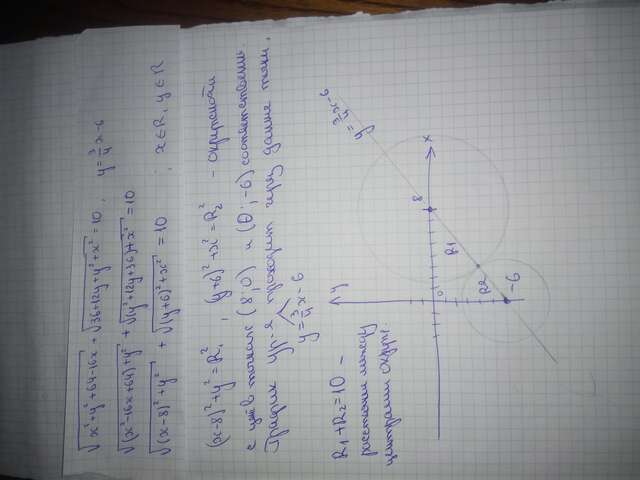 √(x²+y²+64-16x) + √(36+12y+y²+x²) = 10 , y=3/4x-6
√((x²-16x+64)+y²) + √((y²+12y+36)+x²) = 10
√((x-8)²+y²) + √((y+6)²+x²) = 10 ; x∈R, y∈R
(x-8)²+y²=R₁² , (y+6)²+x²=R₂² - окружности
с ц. в точках (8;0) и (0;-6) соответственно.
График ур-я проходит через данные точки.
y=3/4x-6
R1+R2=10 -
расстояние между
центрами окруж.
y
x
8
0
R1
R2
-6
y=3/4x-6